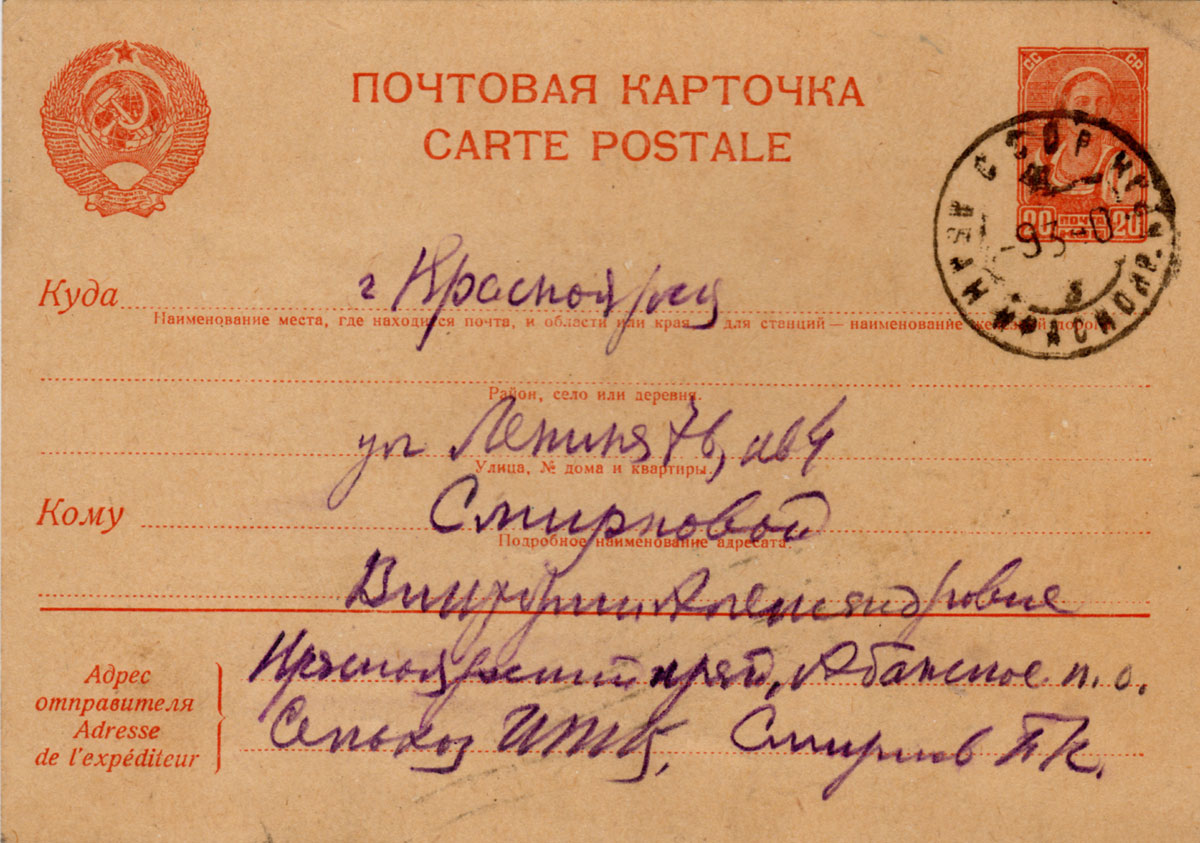 ПОЧТОВАЯ КАРТОЧКА
CARTE POSTALE
СС СР
20 ПОЧТА 20
Куда г Красноярск
Наименование места, где находится почта, и области или края для станций — наименование железной дороги
Район, село или деревня.
ул Ленина 7в, кв 4
Улица, № дома и квартиры.
Кому Смирновой
Подробное наименование адресата.
Александровне
Адрес
отправителя
Adresse
de l'expéditeur
Красноярский край, Абанское п.о.
Сельхоз Смирнов П К.